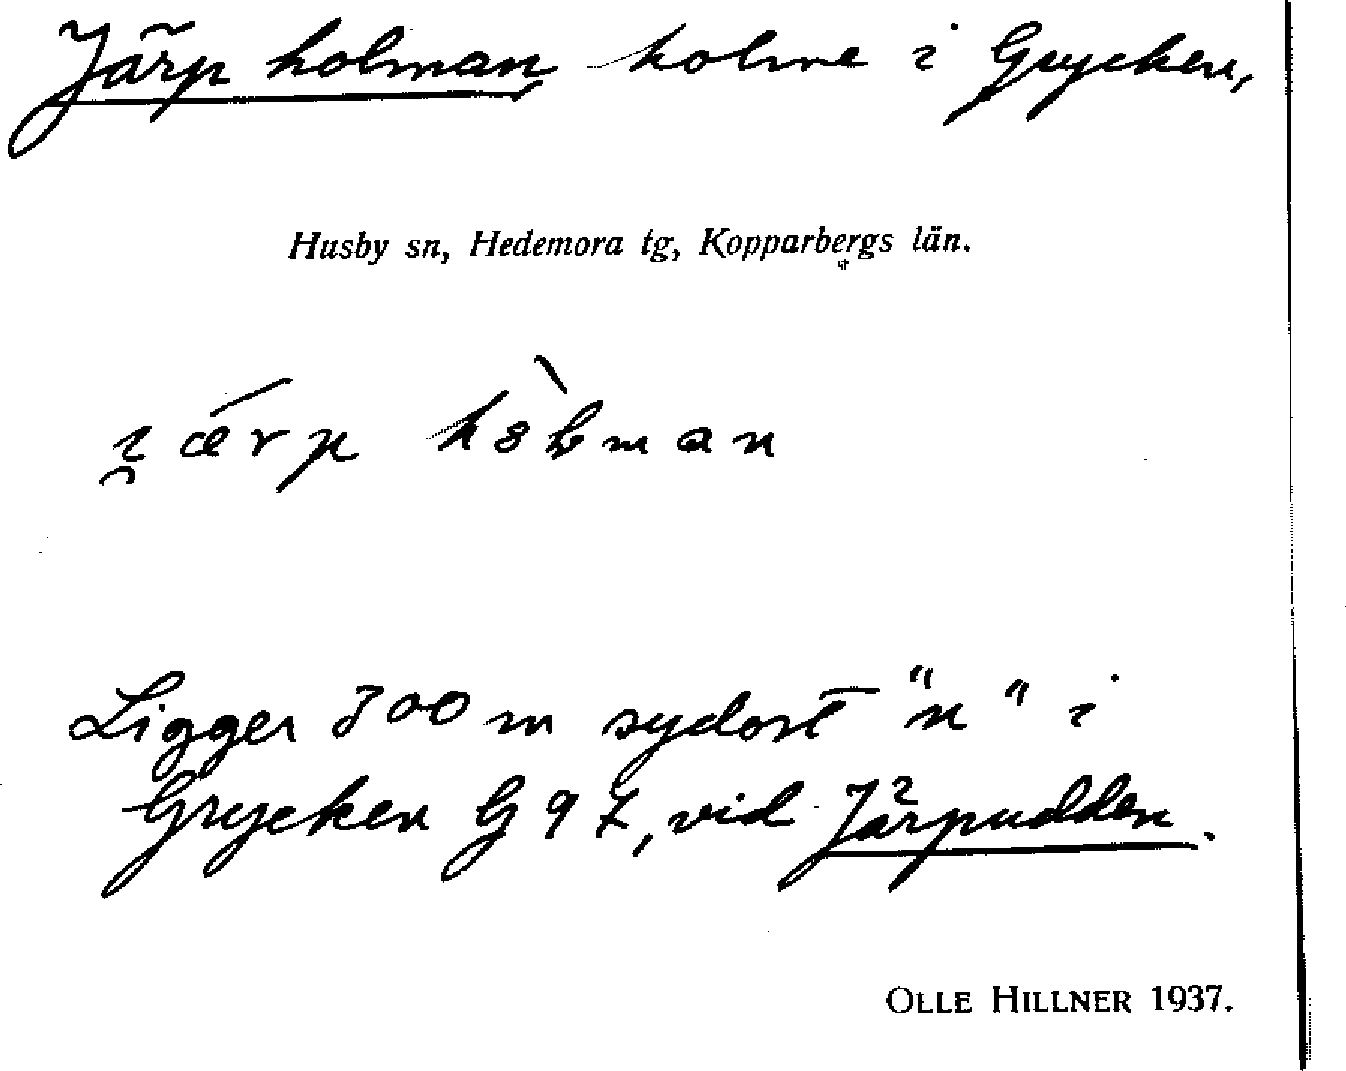 Järpholman, holme i Grycken,
Husby sn, Hedemora tg, Kopparbergs län.
Ligger 300 m sydost "n" i
Grycken G 97, vid Järpudden.
OLLE HILLNER 1937.